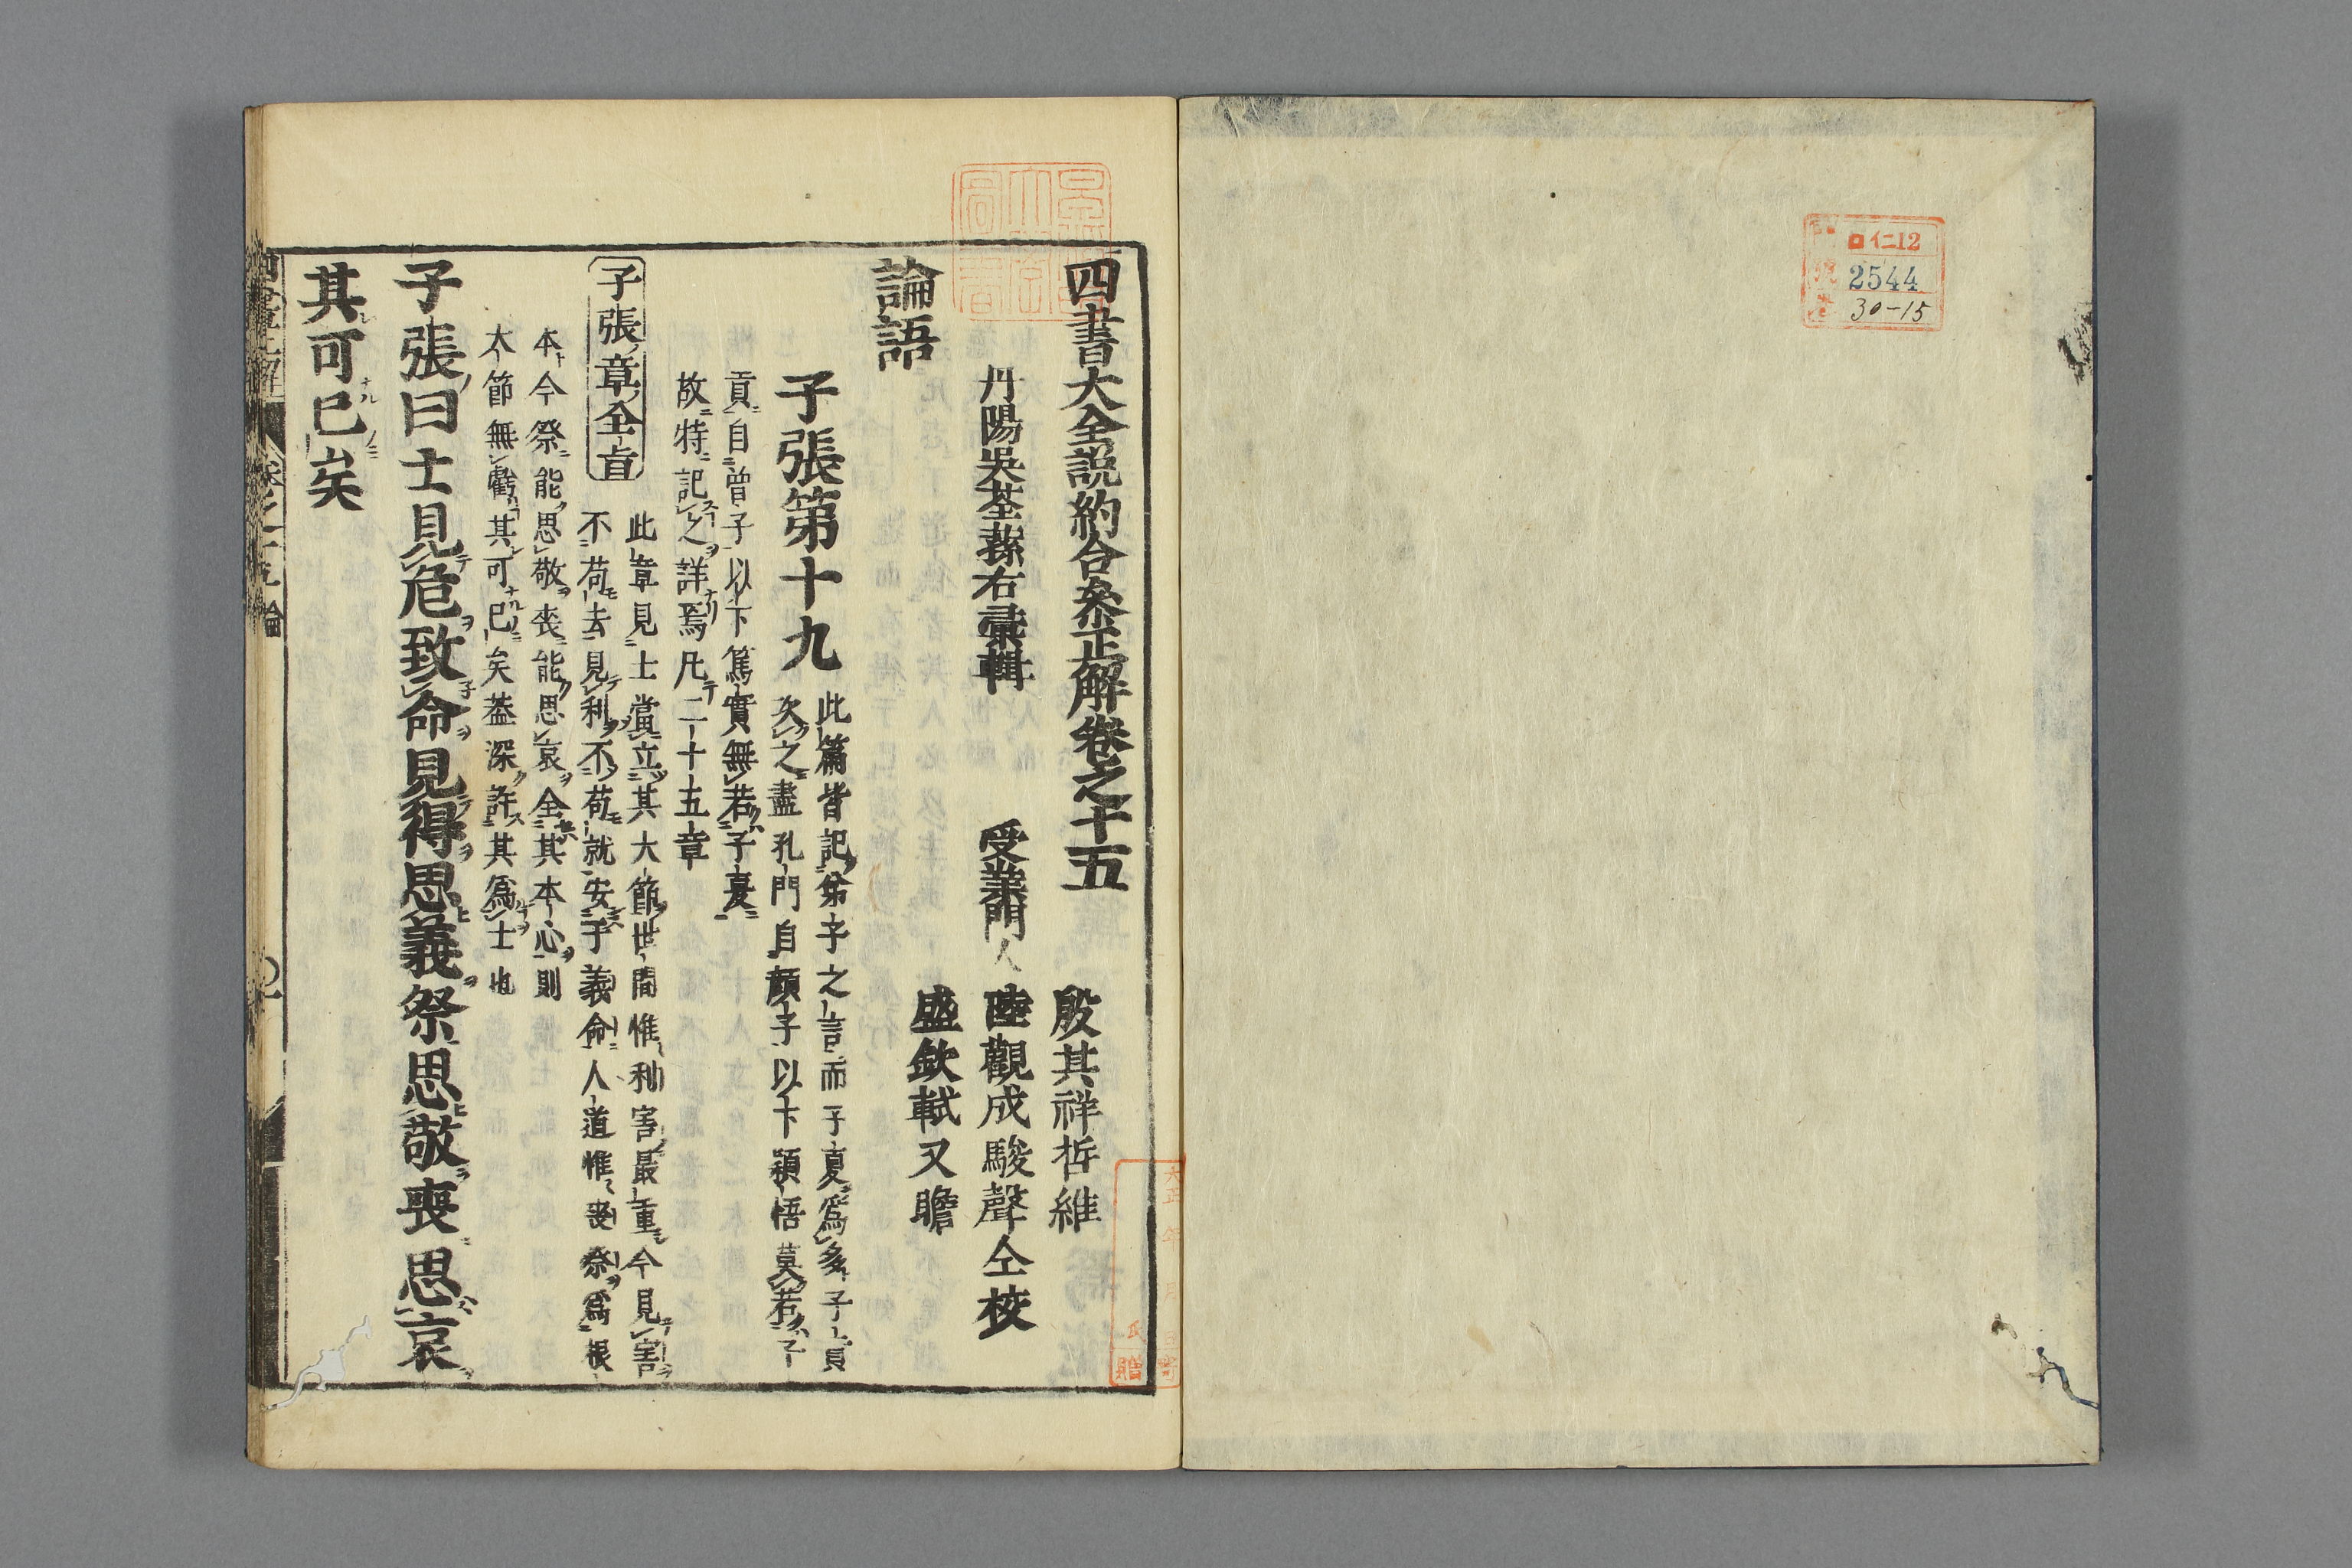 仁12
2544
30-15
四書大全説約合糸正解卷之十五
丹陽吳荃蓀右彙輯
受業門人
殷其祥哲維
陸觀成駿聲仝校
盛欽軾又瞻
論語
子張第十九
此篇皆記弟子之言而子夏爲多子貢
次之蓋孔門自顔子以下頴悟莫若子
貢自曾子以下篤實無若子夏
故特記之詳焉凡二十五章
子張章全旨
此章見士當立其大節世間惟利害最重今見害
不苟去見利不苟就安于義命人道惟喪祭爲根
本今祭能思敬喪能思哀全其本心則
大節無虧其可已矣葢深許其爲士也
子張曰士見危致命見得思義祭思敬喪思哀
其可已矣